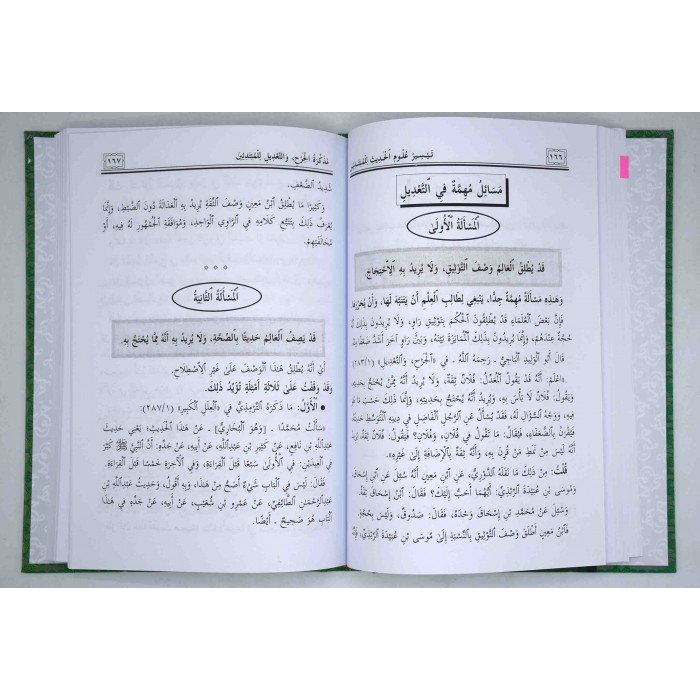 ١٦٦
تَيْسِيرُ عُلُومِ الْحَدِيثِ لِلْمُبْتَدِئِينَ
مَسَائِلُ مُهِمَّةٌ فِي التَّعْدِيلِ
الْمَسْأَلَةُ الْأُولَى
قَدْ يُطْلِقُ الْعَالِمُ وَصْفَ التَّوْثِيقِ، وَلَا يُرِيدُ بِهِ الِاحْتِجَاجَ
وَهَذِهِ مَسْأَلَةٌ مُهِمَّةٌ جِدًّا، يَنْبَغِي لِطَالِبِ الْعِلْمِ أَنْ يَتَنَبَّهَ لَهَا، وَأَنْ يُحَرِّرَهَا
فَإِنَّ بَعْضَ الْعُلَمَاءِ قَدْ يُطْلِقُونَ الْحُكْمَ بِتَوْثِيقِ رَاوٍ، وَلَا يُرِيدُونَ بِذَلِكَ
حُجَّةٌ عِنْدَهُمْ، وَإِنَّمَا يُرِيدُونَ بِذَلِكَ الْمُمَايَزَةَ بَيْنَهُ، وَبَيْنَ رَاوٍ آخَرَ أَشَدَّ ضَعْفًا
قَالَ أَبُو الْوَلِيدِ الْبَاجِي ـ رَحِمَهُ اللَّهُ ـ فِي «الْجَرْحِ، وَالتَّعْدِيلِ» (٢٨٣/١)
«اعْلَمْ: أَنَّهُ قَدْ يَقُولُ الْمُعَدِّلُ: فُلَانٌ ثِقَةٌ، وَلَا يُرِيدُ أَنَّهُ مِمَّنْ يُحْتَجُّ بِحَدِيثِهِ
وَيَقُولُ: فُلَانٌ لَا بَأْسَ بِهِ، وَيُرِيدُ أَنَّهُ يُحْتَجُّ بِحَدِيثِهِ، وَإِنَّمَا ذَلِكَ عَلَى حَسَبِ مَا
وَوَجْهِ السُّؤَالِ لَهُ، فَقَدْ يُسْأَلُ عَنِ الرَّجُلِ الْفَاضِلِ فِي دِينِهِ الْمُتَوَسِّطِ حَدِيثُهُ
فَيُقْرَنُ بِالضُّعَفَاءِ، فَيُقَالُ: مَا تَقُولُ فِي فُلَانٍ، وَفُلَانٍ؟ فَيَقُولُ: فُلَانٌ ثِقَةٌ
أَنَّهُ لَيْسَ مِنْ نَمَطِ مَنْ قُرِنَ بِهِ، وَأَنَّهُ ثِقَةٌ بِالْإِضَافَةِ إِلَى غَيْرِهِ».
قُلْتُ: مِنْ ذَلِكَ مَا نَقَلَهُ الدُّورِيُّ، عَنِ ابْنِ مَعِينٍ أَنَّهُ سُئِلَ عَنِ ابْنِ إِسْحَاقَ
وَمُوسَى بْنِ عُبَيْدَةَ الرَّبَذِيِّ: أَيُّهُمَا أَحَبُّ إِلَيْكَ؟ فَقَالَ: ابْنُ إِسْحَاقَ ثِقَةٌ.
وَسُئِلَ عَنْ مُحَمَّدِ بْنِ إِسْحَاقَ وَحْدَهُ، فَقَالَ: صَدُوقٌ، وَلَيْسَ بِحُجَّةٍ
فَابْنُ مَعِينٍ أَطْلَقَ وَصْفَ التَّوْثِيقِ بِالنِّسْبَةِ إِلَى مُوسَى بْنِ عُبَيْدَةَ الرَّبَذِيِّ،
مُذَكِّرَةُ الْجَرْحِ، وَالتَّعْدِيلِ لِلْمُبْتَدِئِينَ
١٦٧
شَدِيدُ الضَّعْفِ.
وَكَثِيرًا مَا يُطْلِقُ ابْنُ مَعِينٍ وَصْفَ الثِّقَةِ يُرِيدُ بِهِ الْعَدَالَةَ دُونَ الضَّبْطِ، وَإِنَّمَا
يُعْرَفُ ذَلِكَ بِتَتَبُّعِ كَلَامِهِ فِي الرَّاوِي الْوَاحِدِ، وَمُوَافَقَةِ الْجُمْهُورِ لَهُ فِيهِ، أَوْ
مُخَالَفَتِهِمْ.
* * *
الْمَسْأَلَةُ الثَّانِيَةُ
قَدْ يَصِفُ الْعَالِمُ حَدِيثًا بِالصِّحَّةِ، وَلَا يُرِيدُ بِهِ أَنَّهُ مِمَّا يُحْتَجُّ بِهِ.
أَيْ أَنَّهُ يُطْلِقُ هَذَا الْوَصْفَ عَلَى غَيْرِ الِاصْطِلَاحِ.
وَقَدْ وَقَفْتُ عَلَى ثَلَاثَةِ أَمْثِلَةٍ تُؤَيِّدُ ذَلِكَ.
• الْأَوَّلُ: مَا ذَكَرَهُ التِّرْمِذِيُّ فِي «الْعِلَلِ الْكَبِيرِ» (٢٨٧/١)
«سَأَلْتُ مُحَمَّدًا . [وَهُوَ الْبُخَارِيُّ] . عَنْ هَذَا الْحَدِيثِ: يَعْنِي حَدِيثَ
عَبْدِاللَّهِ بْنِ نَافِعٍ، عَنْ كَثِيرِ بْنِ عَبْدِاللَّهِ، عَنْ أَبِيهِ، عَنْ جَدِّهِ: أَنَّ النَّبِيَّ ﷺ كَبَّرَ
فِي الْعِيدَيْنِ: فِي الْأُولَى سَبْعًا قَبْلَ الْقِرَاءَةِ، وَفِي الْآخِرَةِ خَمْسًا قَبْلَ الْقِرَاءَةِ.
فَقَالَ: لَيْسَ فِي الْبَابِ شَيْءٌ أَصَحُّ مِنْ هَذَا، وَبِهِ أَقُولُ، وَحَدِيثُ عَبْدِاللَّهِ بْنِ
عَبْدِالرَّحْمَنِ الطَّائِفِيِّ، عَنْ عَمْرِو بْنِ شُعَيْبٍ، عَنْ أَبِيهِ، عَنْ جَدِّهِ فِي هَذَا
الْبَابِ هُوَ صَحِيحٌ . أَيْضًا.